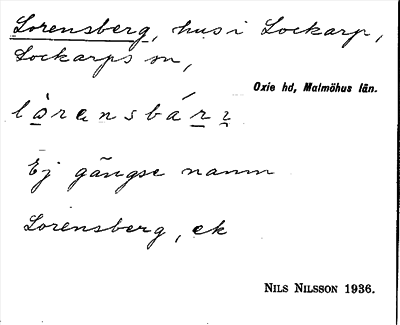 Lorensberg, hus i Lockarp,
Lockarps sn,
Oxie hd, Malmöhus län.
Ej gängse namn
Lorensberg, ek
NILS NILSSON 1936.